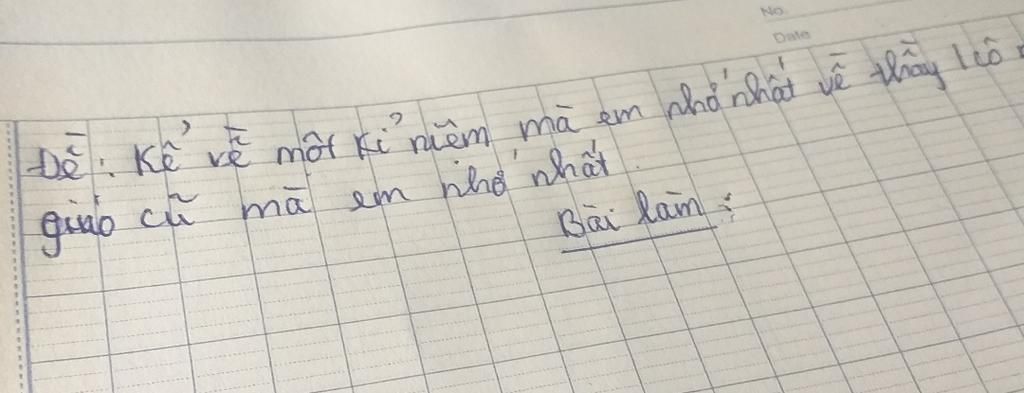 No.
Date
Đề: Kể về một kỉ niệm mà em nhớ nhất về thầy / cô
giáo cũ mà em nhớ nhất.
Bài làm: